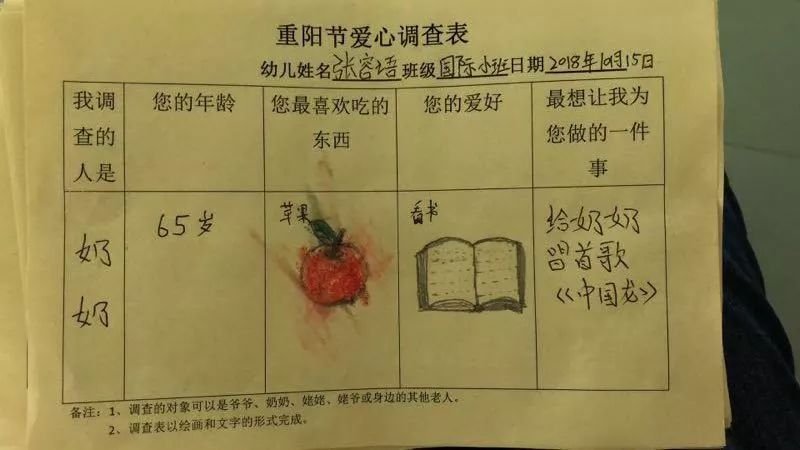 重阳节爱心调查表
幼儿姓名张容语班级国际小班日期2018年10月15日
我调
查的
人是
您的年龄
您最喜欢吃的
东西
您的爱好
最想让我为
您做的一件
事
奶
奶
65岁
苹果
看书
给奶奶
唱首歌
《中国龙》
备注：1、调查的对象可以是爷爷、奶奶、姥姥、姥爷或身边的其他老人。
2、调查表以绘画和文字的形式完成。